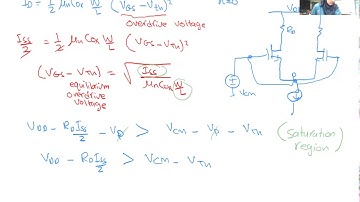 ID = 1/2 μnCox W/L (VGS - VTh)²
overdrive voltage
ISS/2 = 1/2 μnCox W/L (VGS - VTh)²
(VGS - VTh) = √(ISS / μnCox W/L)
equilibrium
overdrive
voltage
VDD - RD ISS/2 - Vp > VCM - Vp - VTh
(saturation
region)
VDD - RD ISS/2 > VCM - VTh
RD
VCM